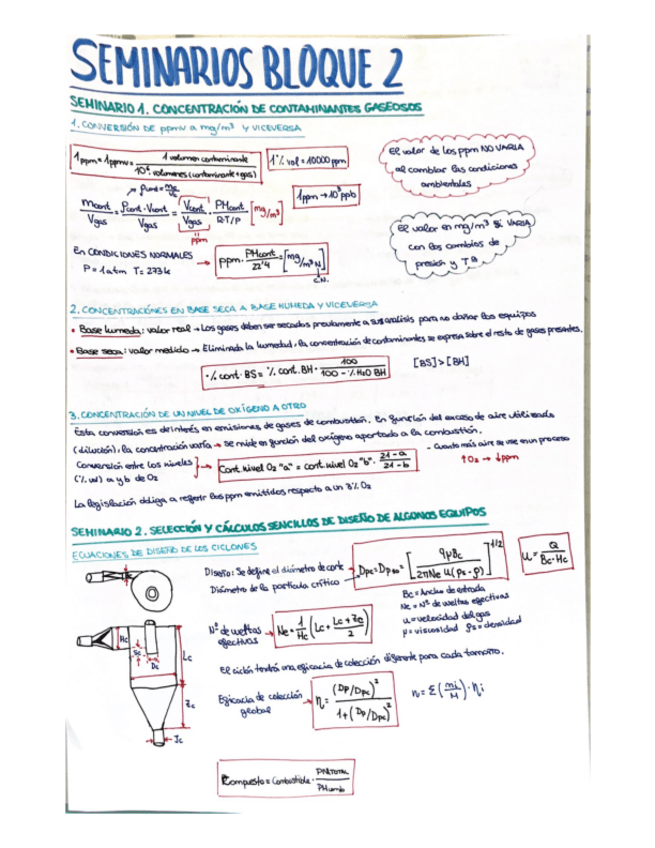 SEMINARIOS BLOQUE 2
SEMINARIO 1. CONCENTRACIÓN DE CONTAMINANTES GASEOSOS
1. CONVERSIÓN DE ppmv a mg/m³ Y VICEVERSA
1ppm = 1ppmv = 1 volumen contaminante / 10⁶ volúmenes (contaminante + gas)
1% vol = 10000 ppm
1ppm → 10³ ppb
El valor de los ppm NO VARIA
al cambiar las condiciones
ambientales
mcont / Vgas = ρcont · Vcont / Vgas = Vcont / Vgas · PMcont / R·T/P [mg/m³]
ppm
El valor en mg/m³ SÍ VARIA
con los cambios de
presión y Tª
En CONDICIONES NORMALES
P = 1atm T = 273k
ppm · PMcont / 22'4 = [mg/m³N]
C.N.
2. CONCENTRACIONES EN BASE SECA A BASE HUMEDA Y VICEVERSA
• Base humeda: valor real → Los gases deben ser secados previamente a su analisis para no dañar los equipos
• Base seca: valor medido → Eliminada la humedad, la concentración de contaminantes se expresa sobre el resto de gases presentes.
· % cont. BS = % cont. BH · 100 / 100 - % H₂O BH
[BS] > [BH]
3. CONCENTRACIÓN DE UN NIVEL DE OXÍGENO A OTRO
Esta conversión es de interés en emisiones de gases de combustión. En función del exceso de aire utilizado
(dilución), la concentración varía → se mide en función del oxígeno aportado a la combustión.
Conversión entre los niveles
(% vol) a y b de O₂
Cont. nivel O₂ "a" = cont. nivel O₂ "b" · 21 - a / 21 - b
- Cuanto más aire se use en un proceso
↑O₂ → ↓ppm
La legislación obliga a referir los ppm emitidos respecto a un 3% O₂
SEMINARIO 2. SELECCIÓN Y CÁLCULOS SENCILLOS DE DISEÑO DE ALGUNOS EQUIPOS
ECUACIONES DE DISEÑO DE LOS CICLONES
Diseño: Se define el diámetro de corte
Diámetro de la partícula crítico
Dpc = Dp50 = [9μBc / 2πNe u(ρs - ρ)]^1/2
u = Q / Bc · Hc
Bc = Ancho de entrada
Ne = Nº de vueltas efectivas
u = velocidad del gas
μ = viscosidad ρs = densidad
Nº de vueltas
efectivas
Ne = 1 / Hc (Lc + Lc + Zc / 2)
El ciclón tendrá una eficacia de colección diferente para cada tamaño.
Eficacia de colección
global
η = (Dp/Dpc)² / 1 + (Dp/Dpc)²
η = Σ (mi / M) · ηi
Hc
Lc
Zc
Jc